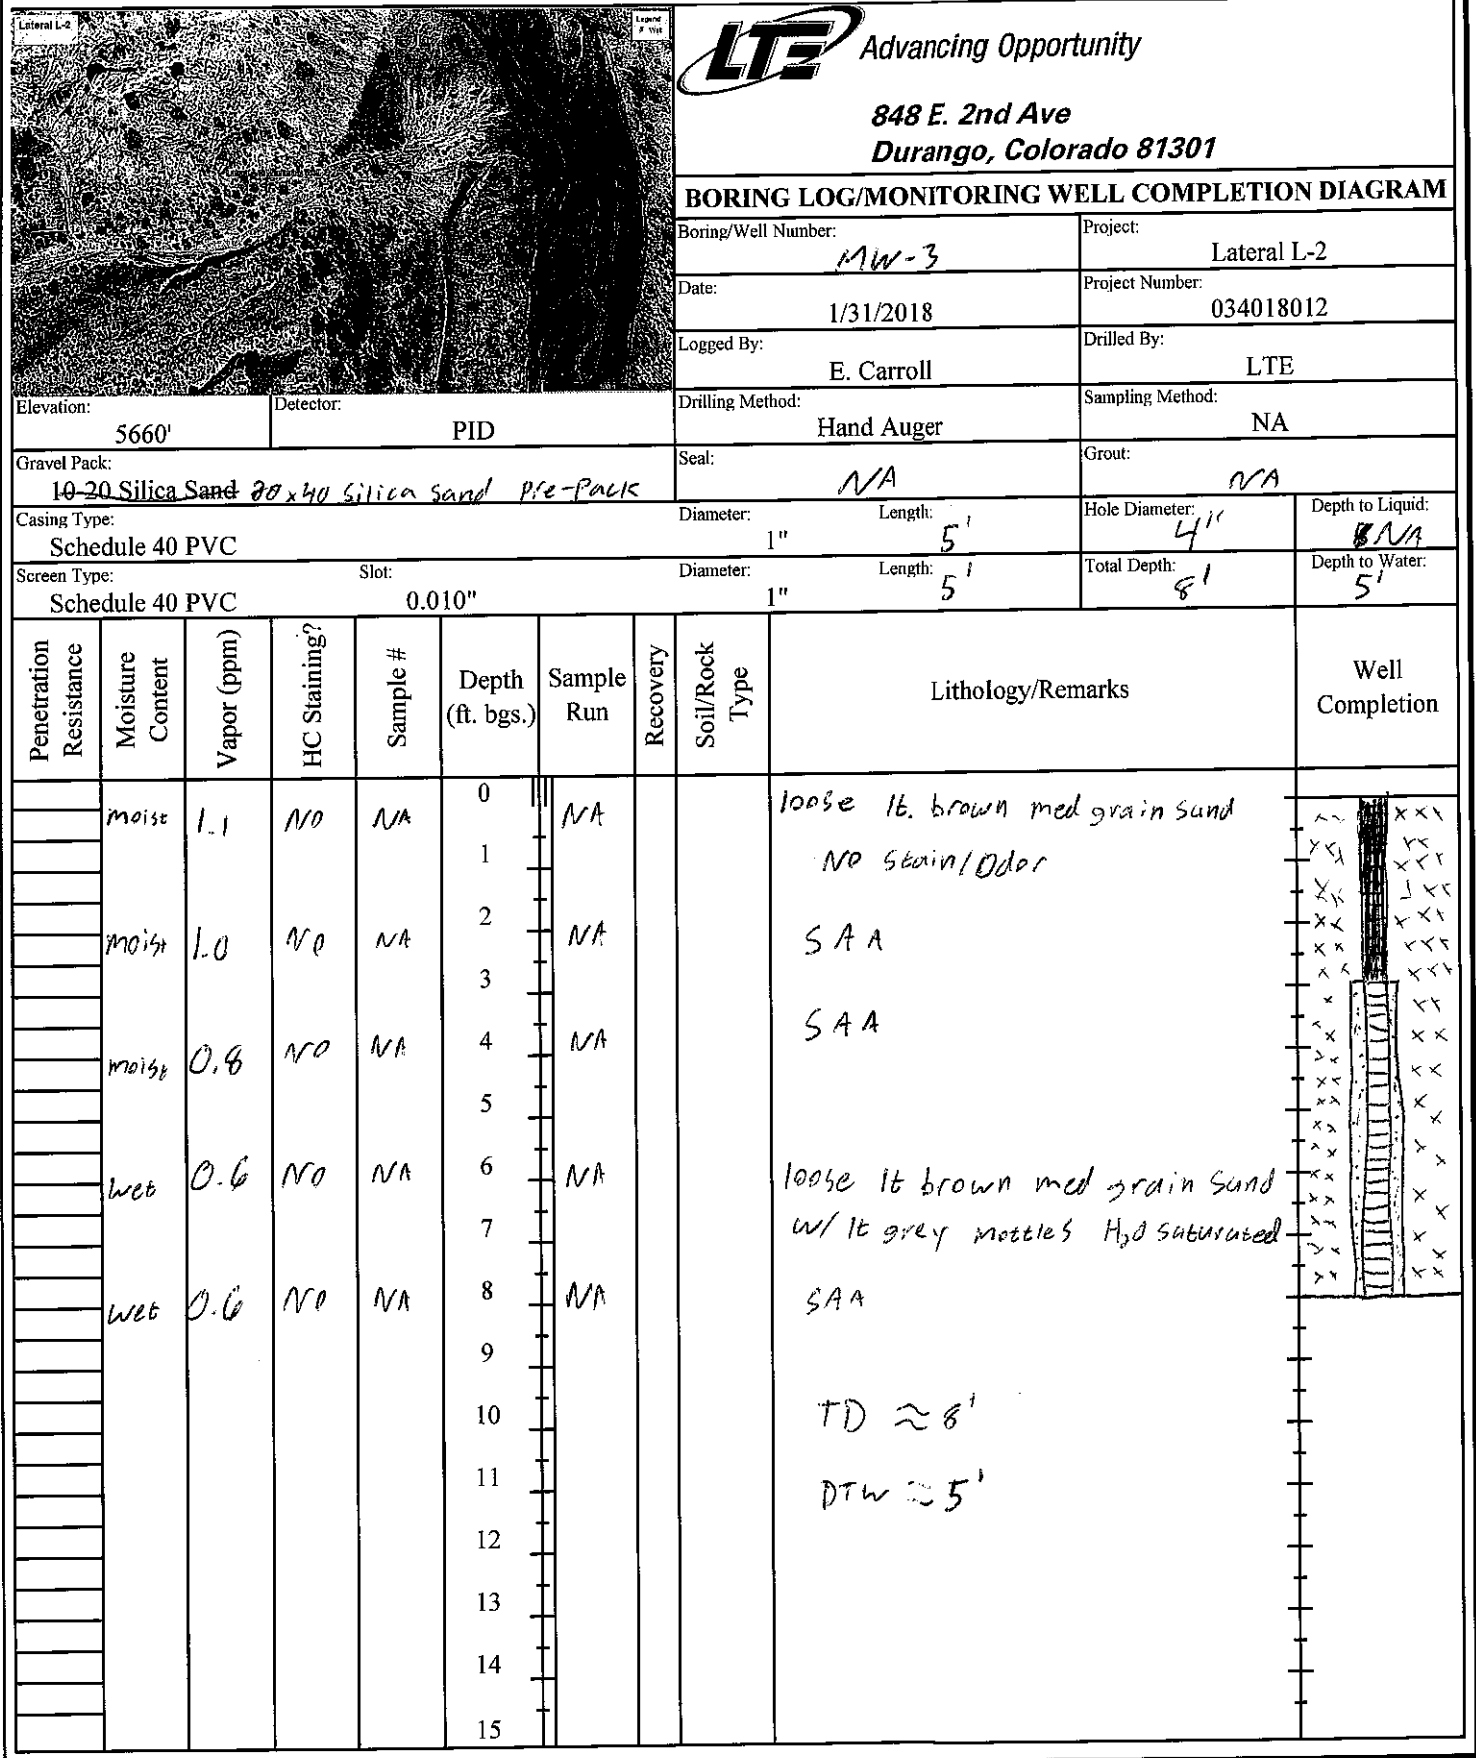 Lateral L-2
Legend
Well
LTE Advancing Opportunity
848 E. 2nd Ave
Durango, Colorado 81301
BORING LOG/MONITORING WELL COMPLETION DIAGRAM
Boring/Well Number: MW-3
Project: Lateral L-2
Date: 1/31/2018
Project Number: 034018012
Logged By: E. Carroll
Drilled By: LTE
Elevation: 5660'
Detector: PID
Drilling Method: Hand Auger
Sampling Method: NA
Gravel Pack: 10-20 Silica Sand 20x40 Silica Sand Pre-Pack
Seal: NA
Grout: NA
Casing Type: Schedule 40 PVC
Diameter: 1"
Length: 5'
Hole Diameter: 4"
Depth to Liquid: NA
Screen Type: Schedule 40 PVC
Slot: 0.010"
Diameter: 1"
Length: 5'
Total Depth: 8'
Depth to Water: 5'
Penetration Resistance
Moisture Content
Vapor (ppm)
HC Staining?
Sample #
Depth (ft. bgs.)
Sample Run
Recovery
Soil/Rock Type
Lithology/Remarks
Well Completion
0
moist 1.1 NO NA NA loose lt. brown med grain sand
1 NO Stain/Odor
2
moist 1.0 NO NA NA SAA
3
SAA
moist 0.8 NO NA 4 NA
5
wet 0.6 NO NA 6 NA loose lt brown med grain sand
7 w/ lt grey mottles H2O saturated
wet 0.6 NO NA 8 NA SAA
9
10 TD ≈ 8'
11 DTW ≈ 5'
12
13
14
15